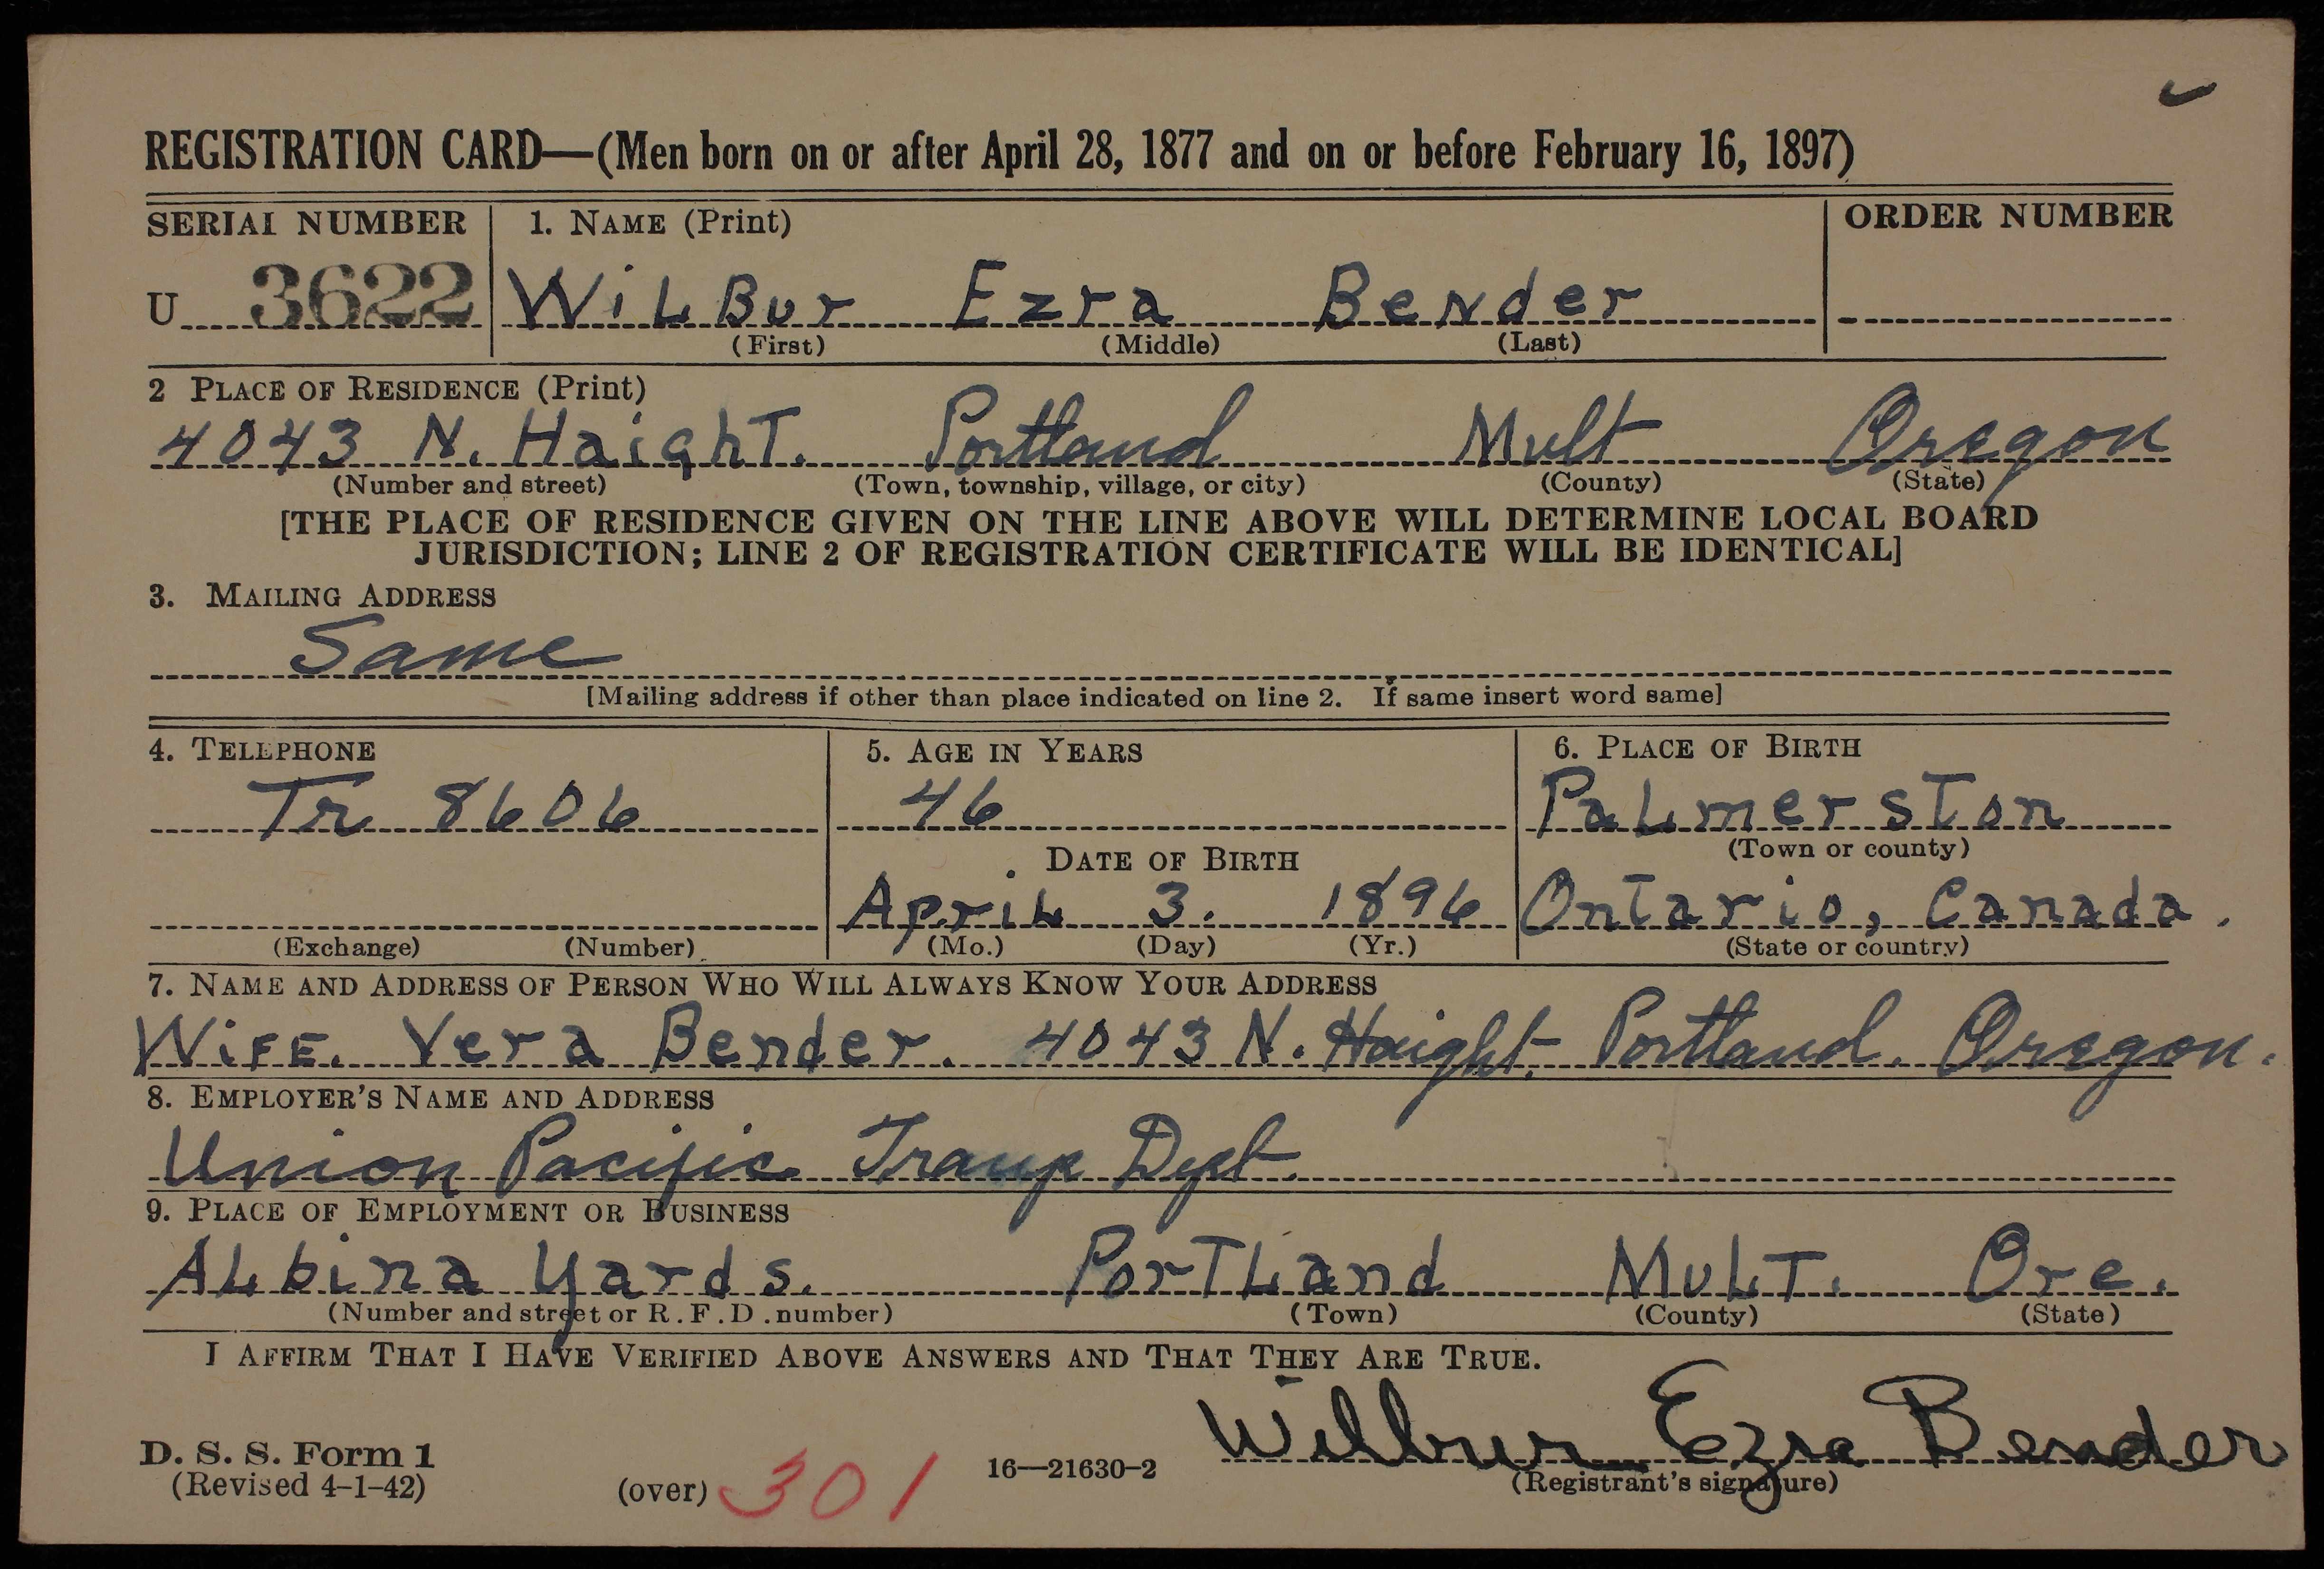 REGISTRATION CARD—(Men born on or after April 28, 1877 and on or before February 16, 1897)
SERIAL NUMBER 1. NAME (Print) ORDER NUMBER
U 3622 WiLBur Ezra Bender
(First) (Middle) (Last)
2 PLACE OF RESIDENCE (Print)
4043 N. HaighT. Portland Mult Oregon
(Number and street) (Town, township, village, or city) (County) (State)
[THE PLACE OF RESIDENCE GIVEN ON THE LINE ABOVE WILL DETERMINE LOCAL BOARD
JURISDICTION; LINE 2 OF REGISTRATION CERTIFICATE WILL BE IDENTICAL]
3. MAILING ADDRESS
Same
[Mailing address if other than place indicated on line 2. If same insert word same]
4. TELEPHONE 5. AGE IN YEARS 6. PLACE OF BIRTH
Tr 8606 46 PaLmersTon
(Town or county)
DATE OF BIRTH
ApriL 3. 1896 OnTario, Canada.
(Exchange) (Number) (Mo.) (Day) (Yr.) (State or country)
7. NAME AND ADDRESS OF PERSON WHO WILL ALWAYS KNOW YOUR ADDRESS
WiFE. Vera Bender. 4043 N. Haight Portland. Oregon.
8. EMPLOYER'S NAME AND ADDRESS
Union Pacific Transp Dept.
9. PLACE OF EMPLOYMENT OR BUSINESS
ALbina Yards. PorTLand MuLT. Ore.
(Number and street or R. F. D. number) (Town) (County) (State)
I AFFIRM THAT I HAVE VERIFIED ABOVE ANSWERS AND THAT THEY ARE TRUE.
Wilbur Ezra Bender
D. S. S. Form 1
(Revised 4-1-42) (over) 301 16—21630-2 (Registrant's signature)